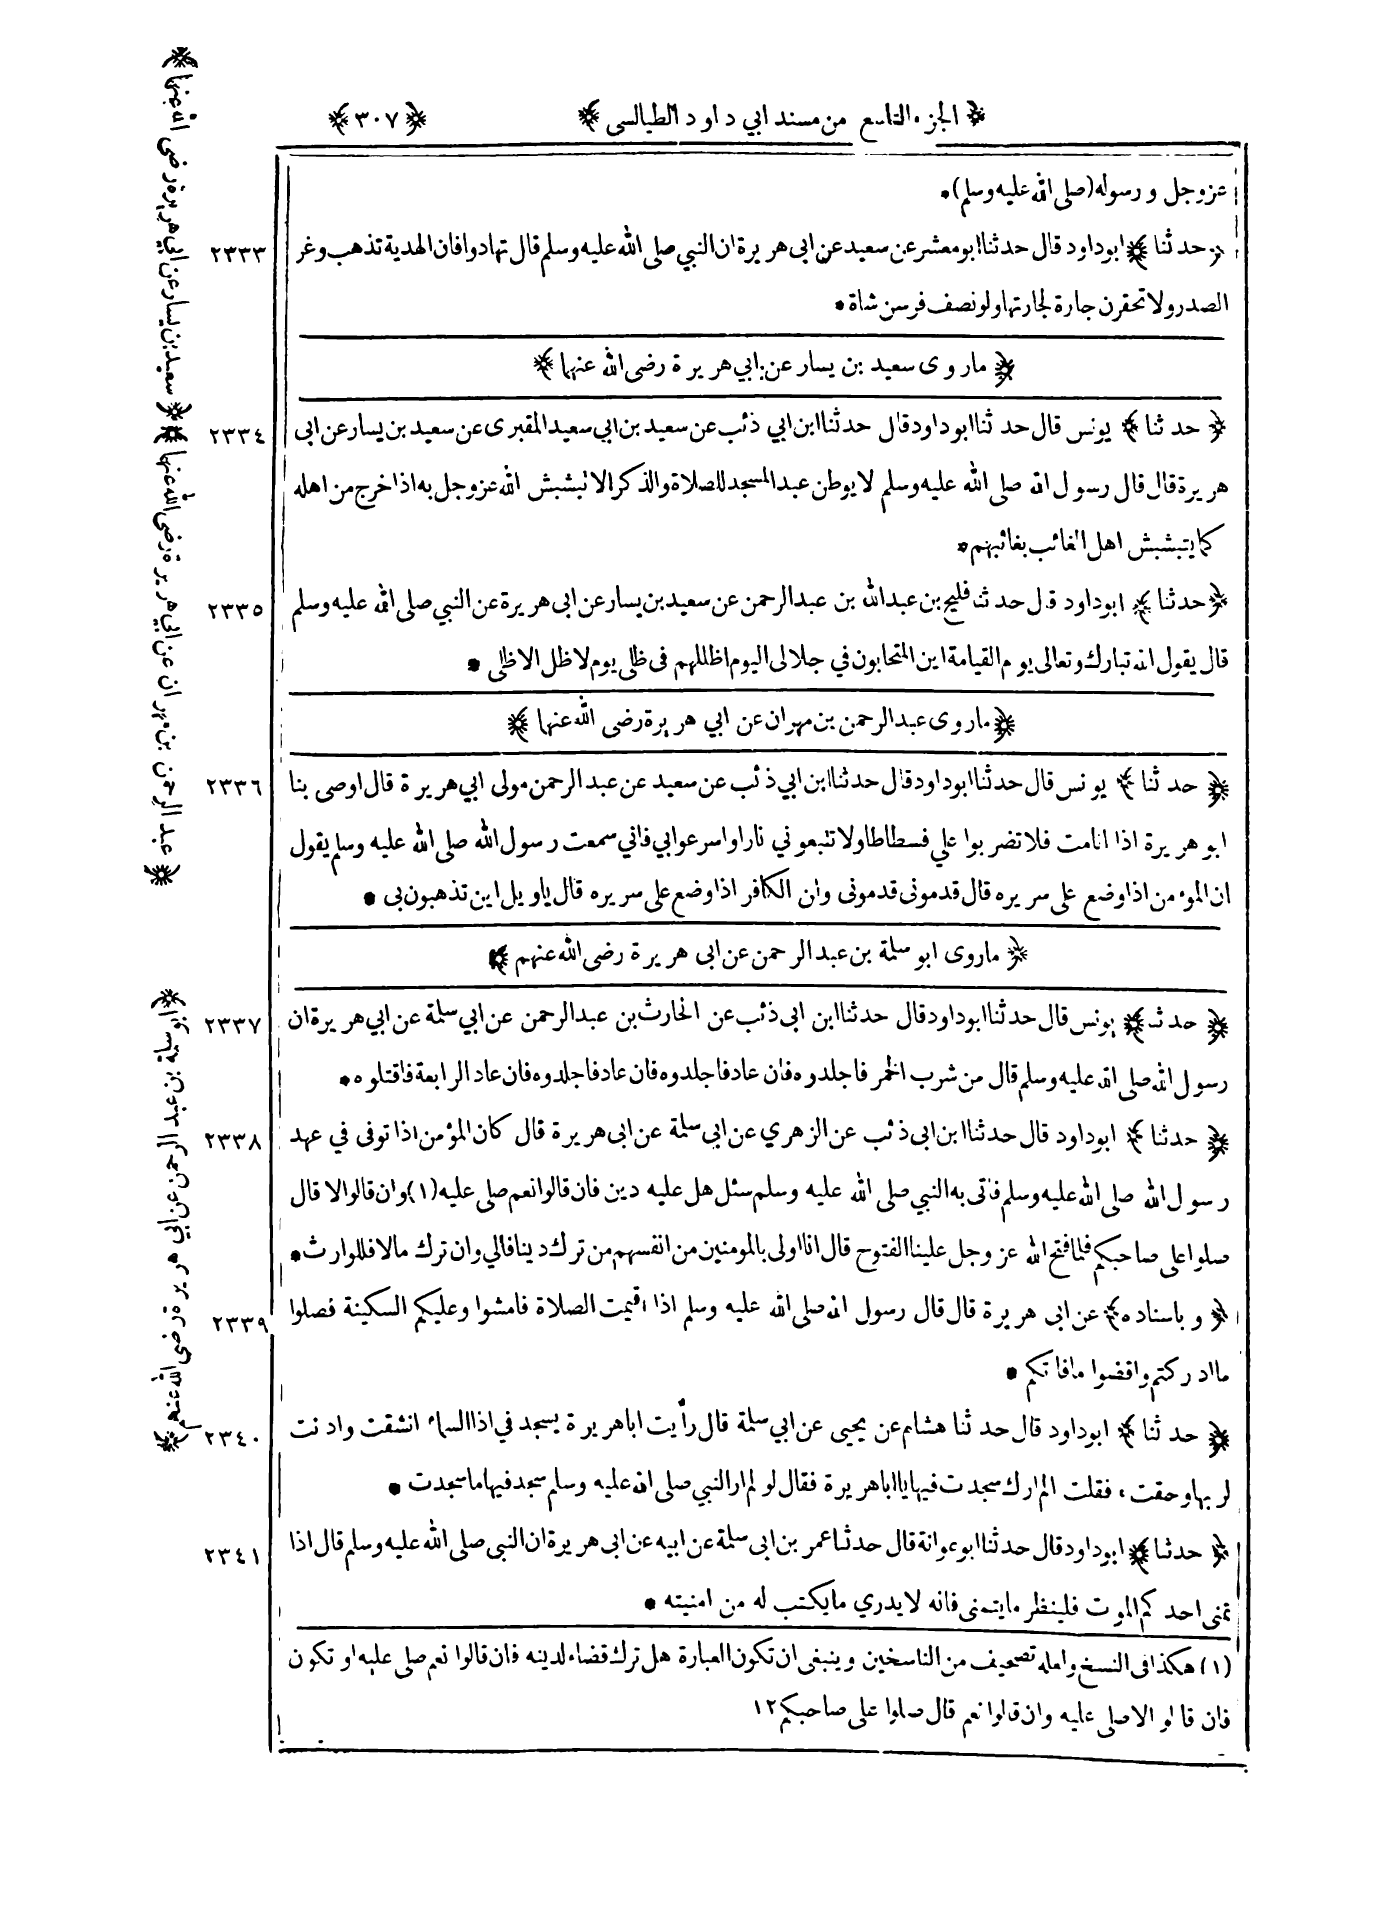 ﴿ الجزء التاسع من مسند ابي داود الطيالسى ﴾ ﴿ ٣٠٧ ﴾
عزوجل و رسوله (صلى الله عليه وسلم)•
﴿ حدثنا ﴾ ابوداود قال حدثنا ابومعشر عن سعيد عن ابى هريرة ان النبي صلى الله عليه وسلم قال تهادوا فان الهدية تذهب وغر ٢٣٣٣
الصدر ولا تحقرن جارة لجارتها ولو نصف فرسن شاة •
﴿ ماروى سعيد بن يسار عن ابي هريرة رضى الله عنهما ﴾
﴿ حدثنا ﴾ يونس قال حدثنا ابوداود قال حدثنا ابن ابي ذئب عن سعيد بن ابي سعيد المقبرى عن سعيد بن يسار عن ابى ٢٣٣٤
هريرة قال قال رسول الله صلى الله عليه وسلم لا يوطن عبد المسجد للصلاة والذكر الا تبشبش الله عزوجل به اذا خرج من اهله
كما يتبشبش اهل الغائب بغائبهم •
﴿ حدثنا ﴾ ابوداود قال حدثنا فليح بن عبدالله بن عبدالرحمن عن سعيد بن يسار عن ابى هريرة عن النبي صلى الله عليه وسلم ٢٣٣٥
قال يقول الله تبارك وتعالى يوم القيامة اين المتحابون في جلالى اليوم اظللهم فى ظلى يوم لاظل الا ظلى •
﴿ ماروى عبدالرحمن بن مهران عن ابي هريرة رضى الله عنهما ﴾
﴿ حدثنا ﴾ يونس قال حدثنا ابوداود قال حدثنا ابن ابي ذئب عن سعيد عن عبدالرحمن مولى ابي هريرة قال اوصى بنا ٢٣٣٦
ابوهريرة اذا انامت فلا تضربوا علي فسطاطا ولا تتبعوني نارا واسرعوابي فاني سمعت رسول الله صلى الله عليه وسلم يقول
ان المؤمن اذا وضع على سريره قال قدمونى قدمونى وان الكافر اذا وضع على سريره قال ياويل اين تذهبون بى •
﴿ ماروى ابوسلمة بن عبدالرحمن عن ابى هريرة رضى الله عنهم ﴾
﴿ حدثنا ﴾ يونس قال حدثنا ابوداود قال حدثنا ابن ابى ذئب عن الحارث بن عبدالرحمن عن ابي سلمة عن ابي هريرة ان ٢٣٣٧
رسول الله صلى الله عليه وسلم قال من شرب الخمر فاجلدوه فان عاد فاجلدوه فان عاد فاجلدوه فان عاد الرابعة فاقتلوه •
﴿ حدثنا ﴾ ابوداود قال حدثنا ابن ابى ذئب عن الزهري عن ابي سلمة عن ابى هريرة قال كان المؤمن اذا توفى في عهد ٢٣٣٨
رسول الله صلى الله عليه وسلم فاتى به النبي صلى الله عليه وسلم سئل هل عليه دين فان قالوا نعم صلى عليه (١) وان قالوا لا قال
صلوا على صاحبكم فلما فتح الله عزوجل علينا الفتوح قال انا اولى بالمومنين من انفسهم من ترك دينا فالي وان ترك مالا فللوارث •
﴿ وباسناده ﴾ عن ابى هريرة قال قال رسول الله صلى الله عليه وسلم اذا اقيمت الصلاة فامشوا وعليكم السكينة فصلوا ٢٣٣٩
ماادركتم واقضوا مافاتكم •
﴿ حدثنا ﴾ ابوداود قال حدثنا هشام عن يحيى عن ابي سلمة قال رأيت اباهريرة يسجد في اذا السماء انشقت واذنت ٢٣٤٠
لربها وحقت ، فقلت الم ارك سجدت فيها يااباهريرة فقال لو لم ار النبي صلى الله عليه وسلم سجد فيها ماسجدت •
﴿ حدثنا ﴾ ابوداود قال حدثنا ابوعوانة قال حدثنا عمر بن ابى سلمة عن ابيه عن ابى هريرة ان النبى صلى الله عليه وسلم قال اذا ٢٣٤١
تمنى احدكم الموت فلينظر مايتمنى فانه لايدري مايكتب له من امنيته •
(١) هكذا فى النسخ ولعله تصحيف من الناسخين وينبغى ان تكون العبارة هل ترك قضاء لدينه فان قالوا نعم صلى عليه او تكون
فان قالو الا صلى عليه وان قالوا نعم قال صلوا على صاحبكم ١٢
سعيد بن يسار عن ابي هريرة رضى الله عنهما ﴾
﴿ عبدالرحمن بن مهران عن ابي هريرة رضى الله عنهما ﴾
﴿ ابوسلمة بن عبد الرحمن عن ابي هريرة رضى الله عنهم ﴾